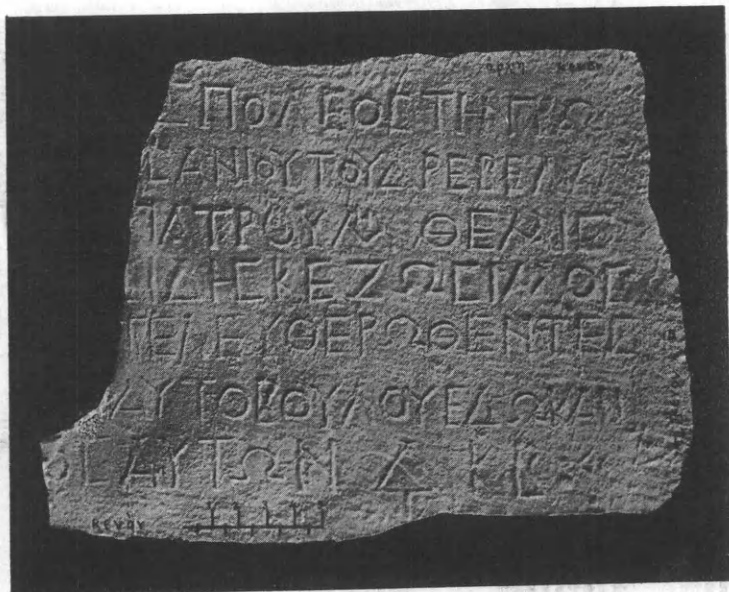 Σ ΠΟΛΕΟΣ ΤΗ ΠΡΩ
ΣΑΝΙΟΥ ΤΟΥ ΔΡΕΒΕΛΑΙ
ΠΑΤΡΟΥΛΟ ΘΕΜΙΣ
ΙΔΗΣ ΚΕ ΖΩΣΙΜΟΣ
ΠΕΛΕΥΘΕΡΩΘΕΝΤΕΣ
ΑΥΤΟΒΟΥΛΟΥ ΕΔΩΚΑΝ
ΟΣ ΑΥΤΩΝ
ΒΕΥΟΥ